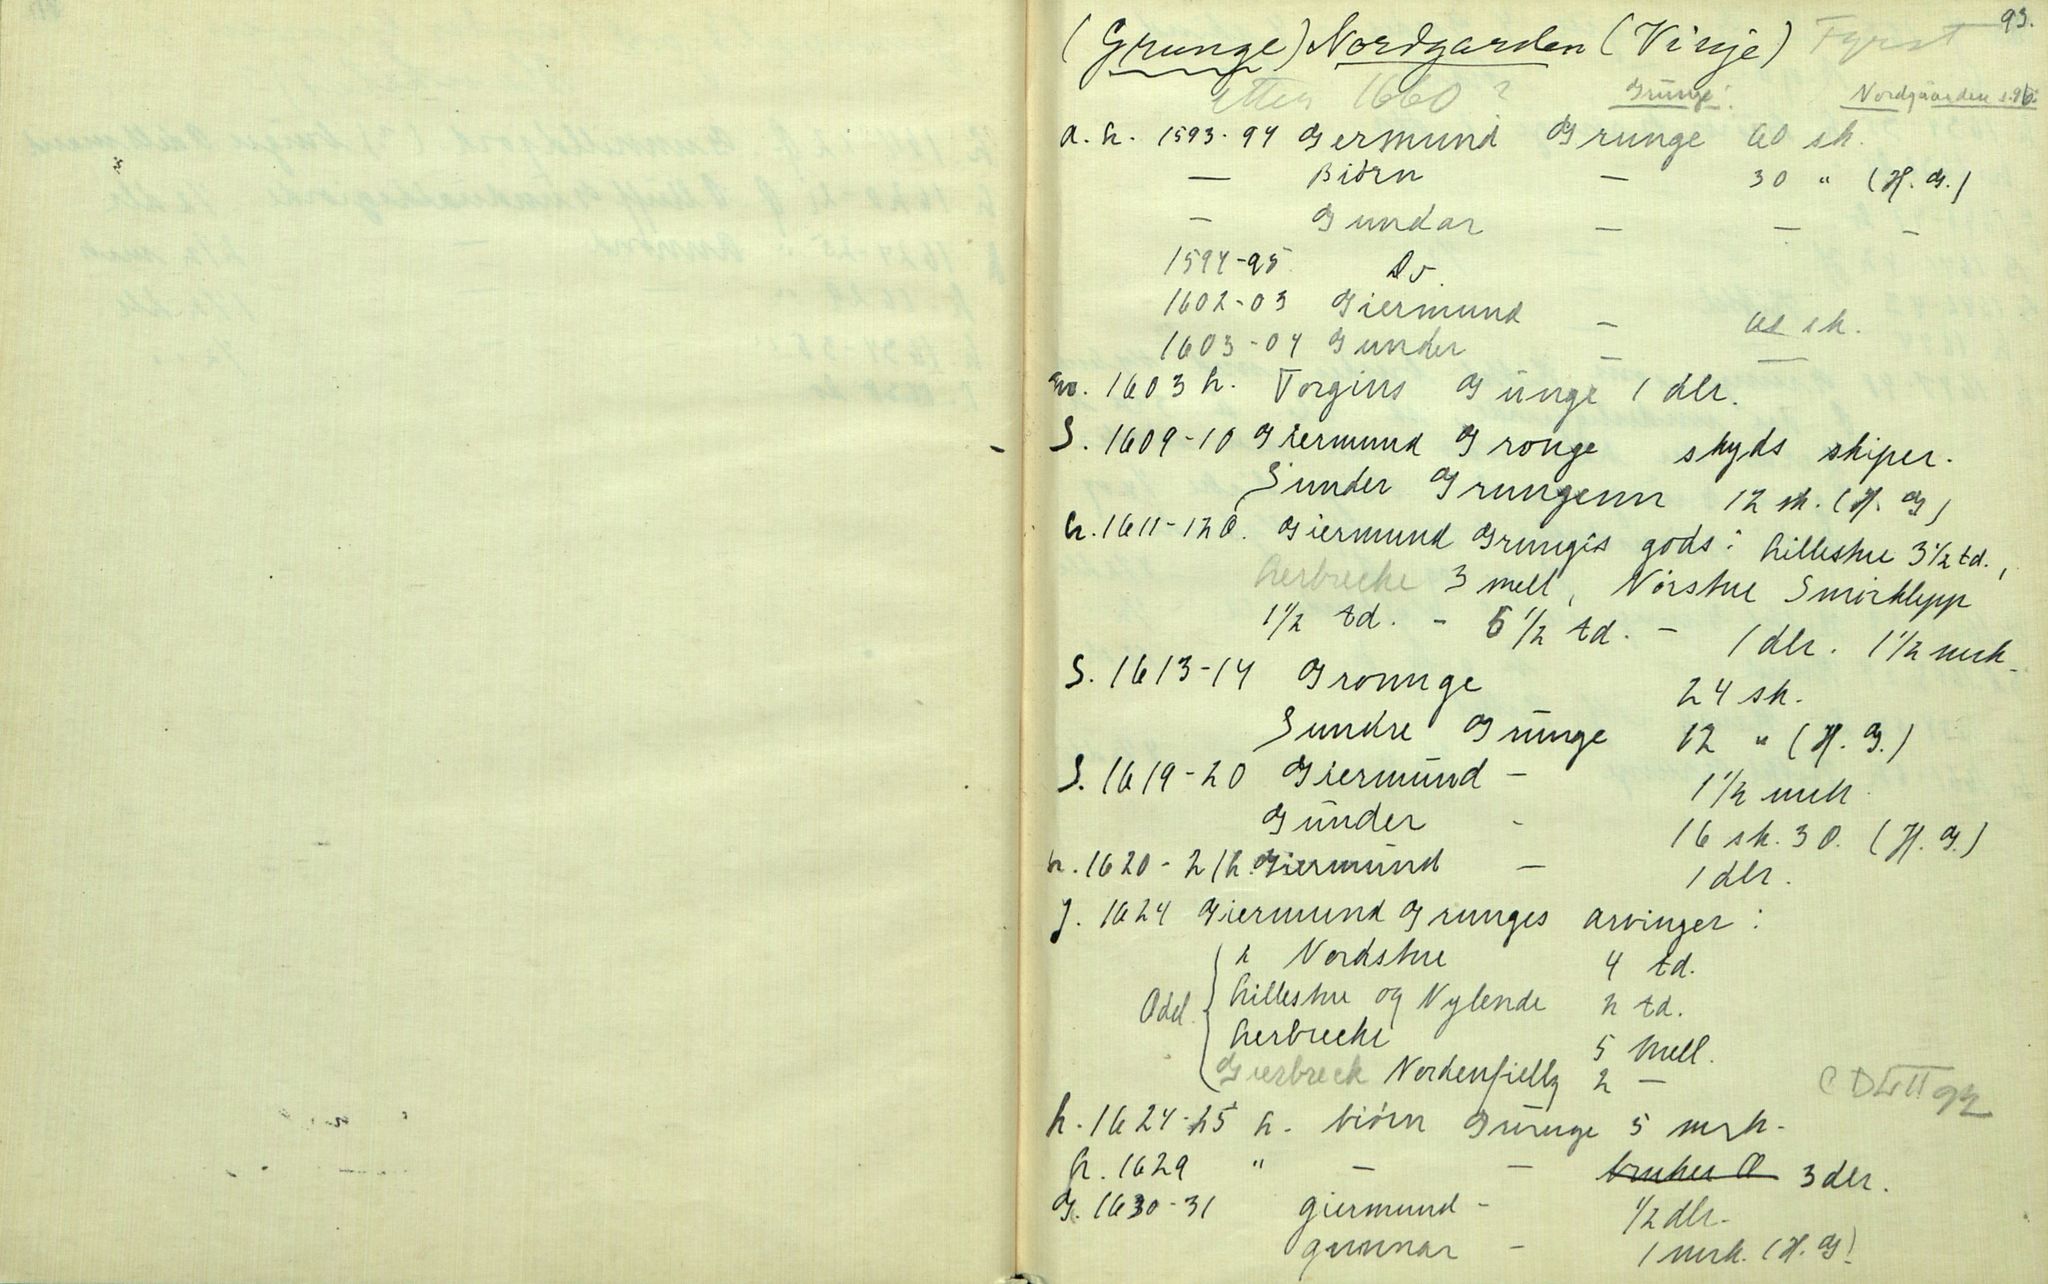 93.
(Grunge) Nordgarden (Vinje) Fyrst
etter 1660?
Grunge: Nordgaarden s. 96:
a. h. 1593-94 Germund Grunge 60 sk.
— Biörn — 30 " (H. G.)
— Gundar — — —
1594-95 Do.
1602-03 Giermund — sk.
1603-04 Gunder — —
1603 h. Torgius Gunge 1 dlr.
S. 1609-10 Giermund Gronge skyds skiper.
Sunder Grungenn 12 sk. (H. G)
h. 1611-12 O. Giermund Grungis gods: Lillestue 3 1/2 td.,
Lerbrecke 3 mell, Nörstue Smörklepp
1 1/2 td. - 5 1/2 td. - 1 dlr. 1 1/2 mrk.
S. 1613-14 Gronnge 24 sk.
Sundre Gunge 12 " (H. G.)
S. 1619-20 Giermund - 1 1/2 mrk.
Gunder - 16 sk. 3 O. (H. G.)
h. 1620-21 h. Giermund — 1 dlr.
J. 1624 Giermund Grunges arvinger:
Odel. { i Nordstue 4 td.
Lillestue og Nylende 2 td.
Lerbrecke 5 mell.
Gierbreck Nordenfielly 2 —
h. 1624-25 h. biörn Gunge 5 mrk.
h. 1629 " — — bruker Ø 3 dlr.
G. 1630-31 giermund - 1/2 dlr.
gunnar - 1 mrk. (H. G.)